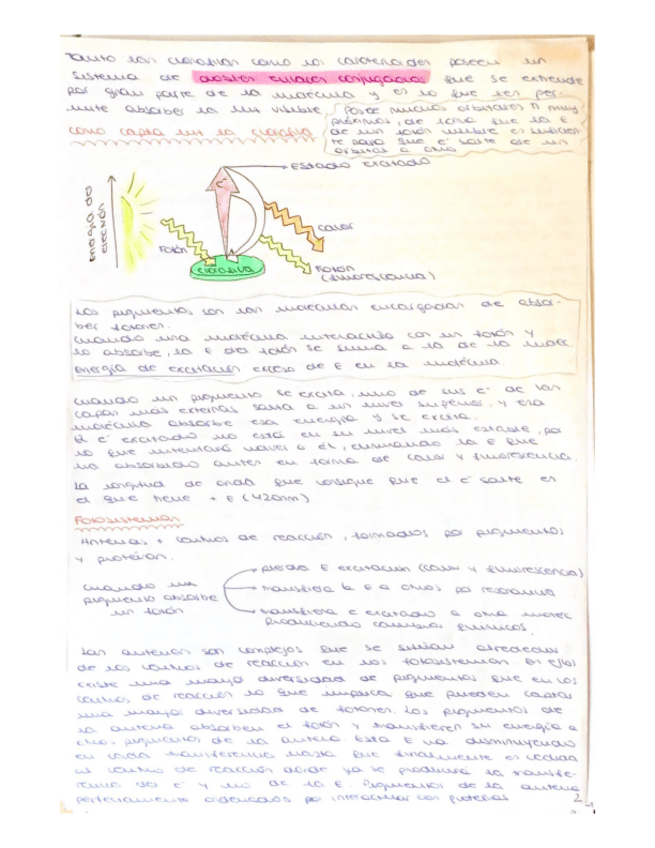 Tanto las clorofilas como los carotenoides poseen un
sistema de dobles enlaces conjugados que se extiende
por gran parte de la molécula y es lo que les per-
mite absorber la luz visible.
Posee muchos orbitales π muy
próximos, de forma que la E
de un fotón visible es suficien-
te para que e⁻ salte de un
orbital a otro
como capta luz la clorofila
Estado excitado
Energía del
electrón
e⁻
Fotón
calor
Fotón
(fluorescencia)
clorofila
Los pigmentos son las moléculas encargadas de absor-
ber fotones.
cuando una molécula interacciona con un fotón y
lo absorbe, la E del fotón se suma a la de la molec
Energía de excitación exceso de E en la molécula
cuando un pigmento se excita, uno de sus e⁻ de las
capas más externas salta a un nivel superior, y esa
molécula absorbe esa energía y se excita.
El e⁻ excitado no está en su nivel más estable, por
lo que intentará volver a él, eliminando la E que
ha absorbido antes en forma de calor y fluorescencia.
La longitud de onda que consigue que el e⁻ salte es
el que tiene + E (420nm)
Fotosistemas
Antenas + centros de reacción, formados por pigmentos
y proteínas.
cuando un
pigmento absorbe
un fotón
pierde E excitación (calor y fluorescencia)
transfiera la E a otros por resonancia
transfiera e⁻ excitado a otra molec
produciendo cambios químicos.
Las antenas son complejos que se sitúan alrededor
de los centros de reacción en los fotosistemas. En ellas
existe una mayor diversidad de pigmentos que en los
centros de reacción lo que implica que pueden captar
una mayor diversidad de fotones. Los pigmentos de
la antena absorben el fotón y transfieren su energía a
otros pigmentos de la antena Esta E va disminuyendo
en cada transferencia hasta que finalmente es cedida
al centro de reacción donde ya se producirá la transfe-
rencia del e⁻ y no de la E. Pigmentos de la antena
perfectamente ordenados por interactuar con proteínas
2